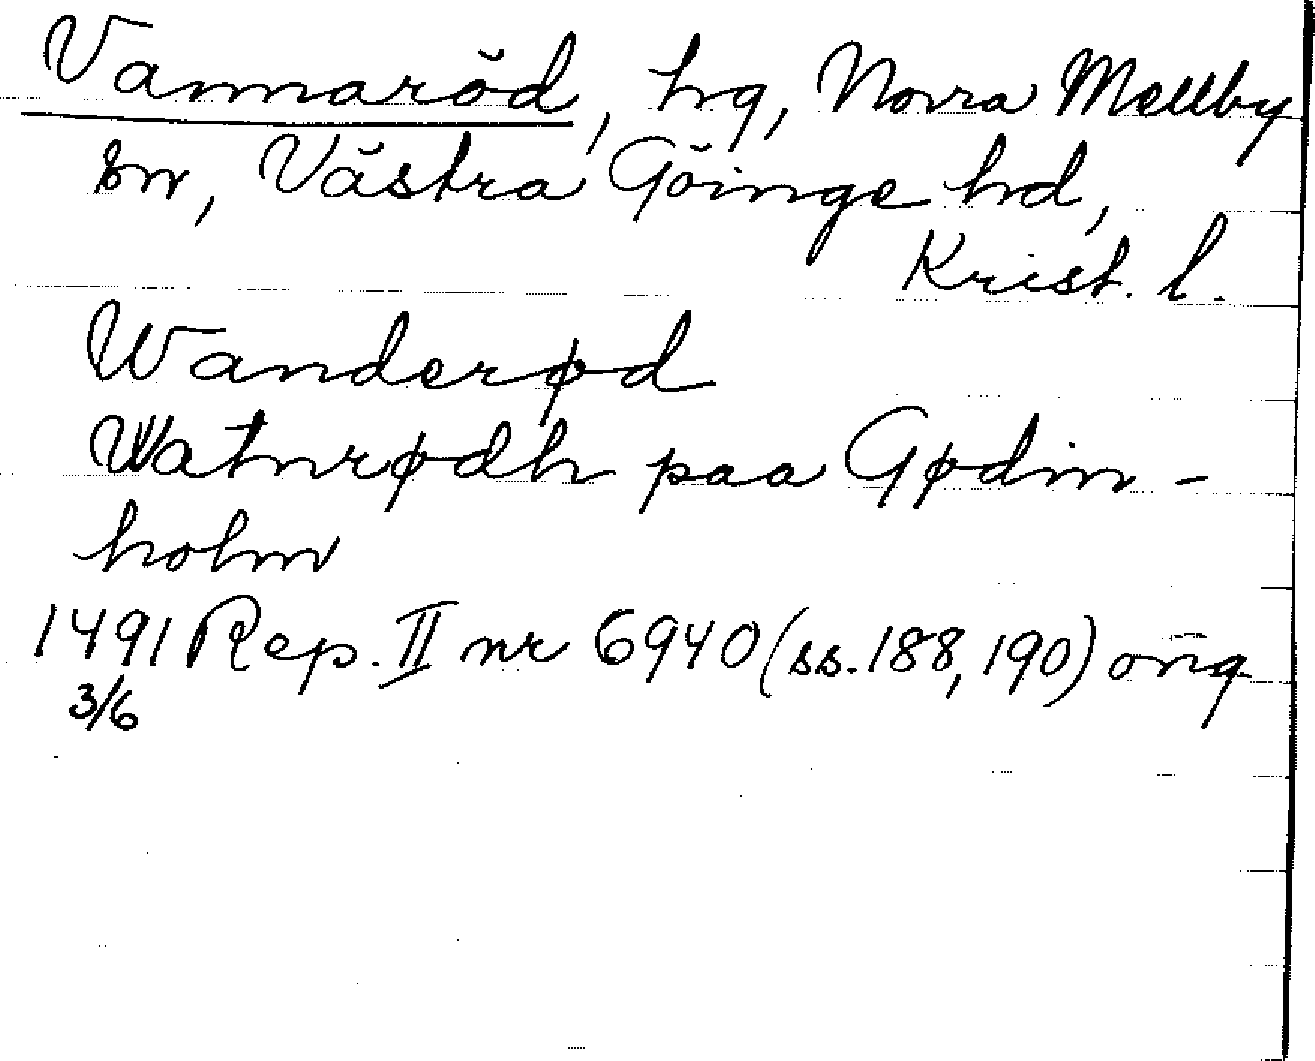 Vannaröd, hg, Norra Mellby
sn, Västra Göinge hd,
Krist. l.
Wanderød
Watnrødh paa Gødin-
holm
1491 Rep. II nr 6940 (ss. 188, 190) orig
3/6